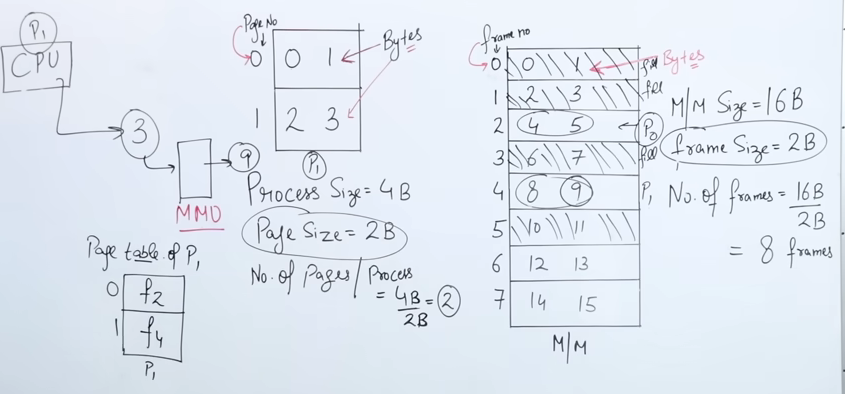 P1
CPU
3
9
MMO
Page table of P1
0 f2
1 f4
P1
Page No
0 0 1
1 2 3
Bytes
P1
Process Size = 4B
Page Size = 2B
No. of Pages / Process
= 4B/2B = 2
frame no
0 0 1 full
1 2 3 full
2 4 5 P0
3 6 7 full
4 8 9 P1
5 10 11
6 12 13
7 14 15
M/M
Bytes
M/M Size = 16B
frame Size = 2B
No. of frames = 16B/2B
= 8 frames